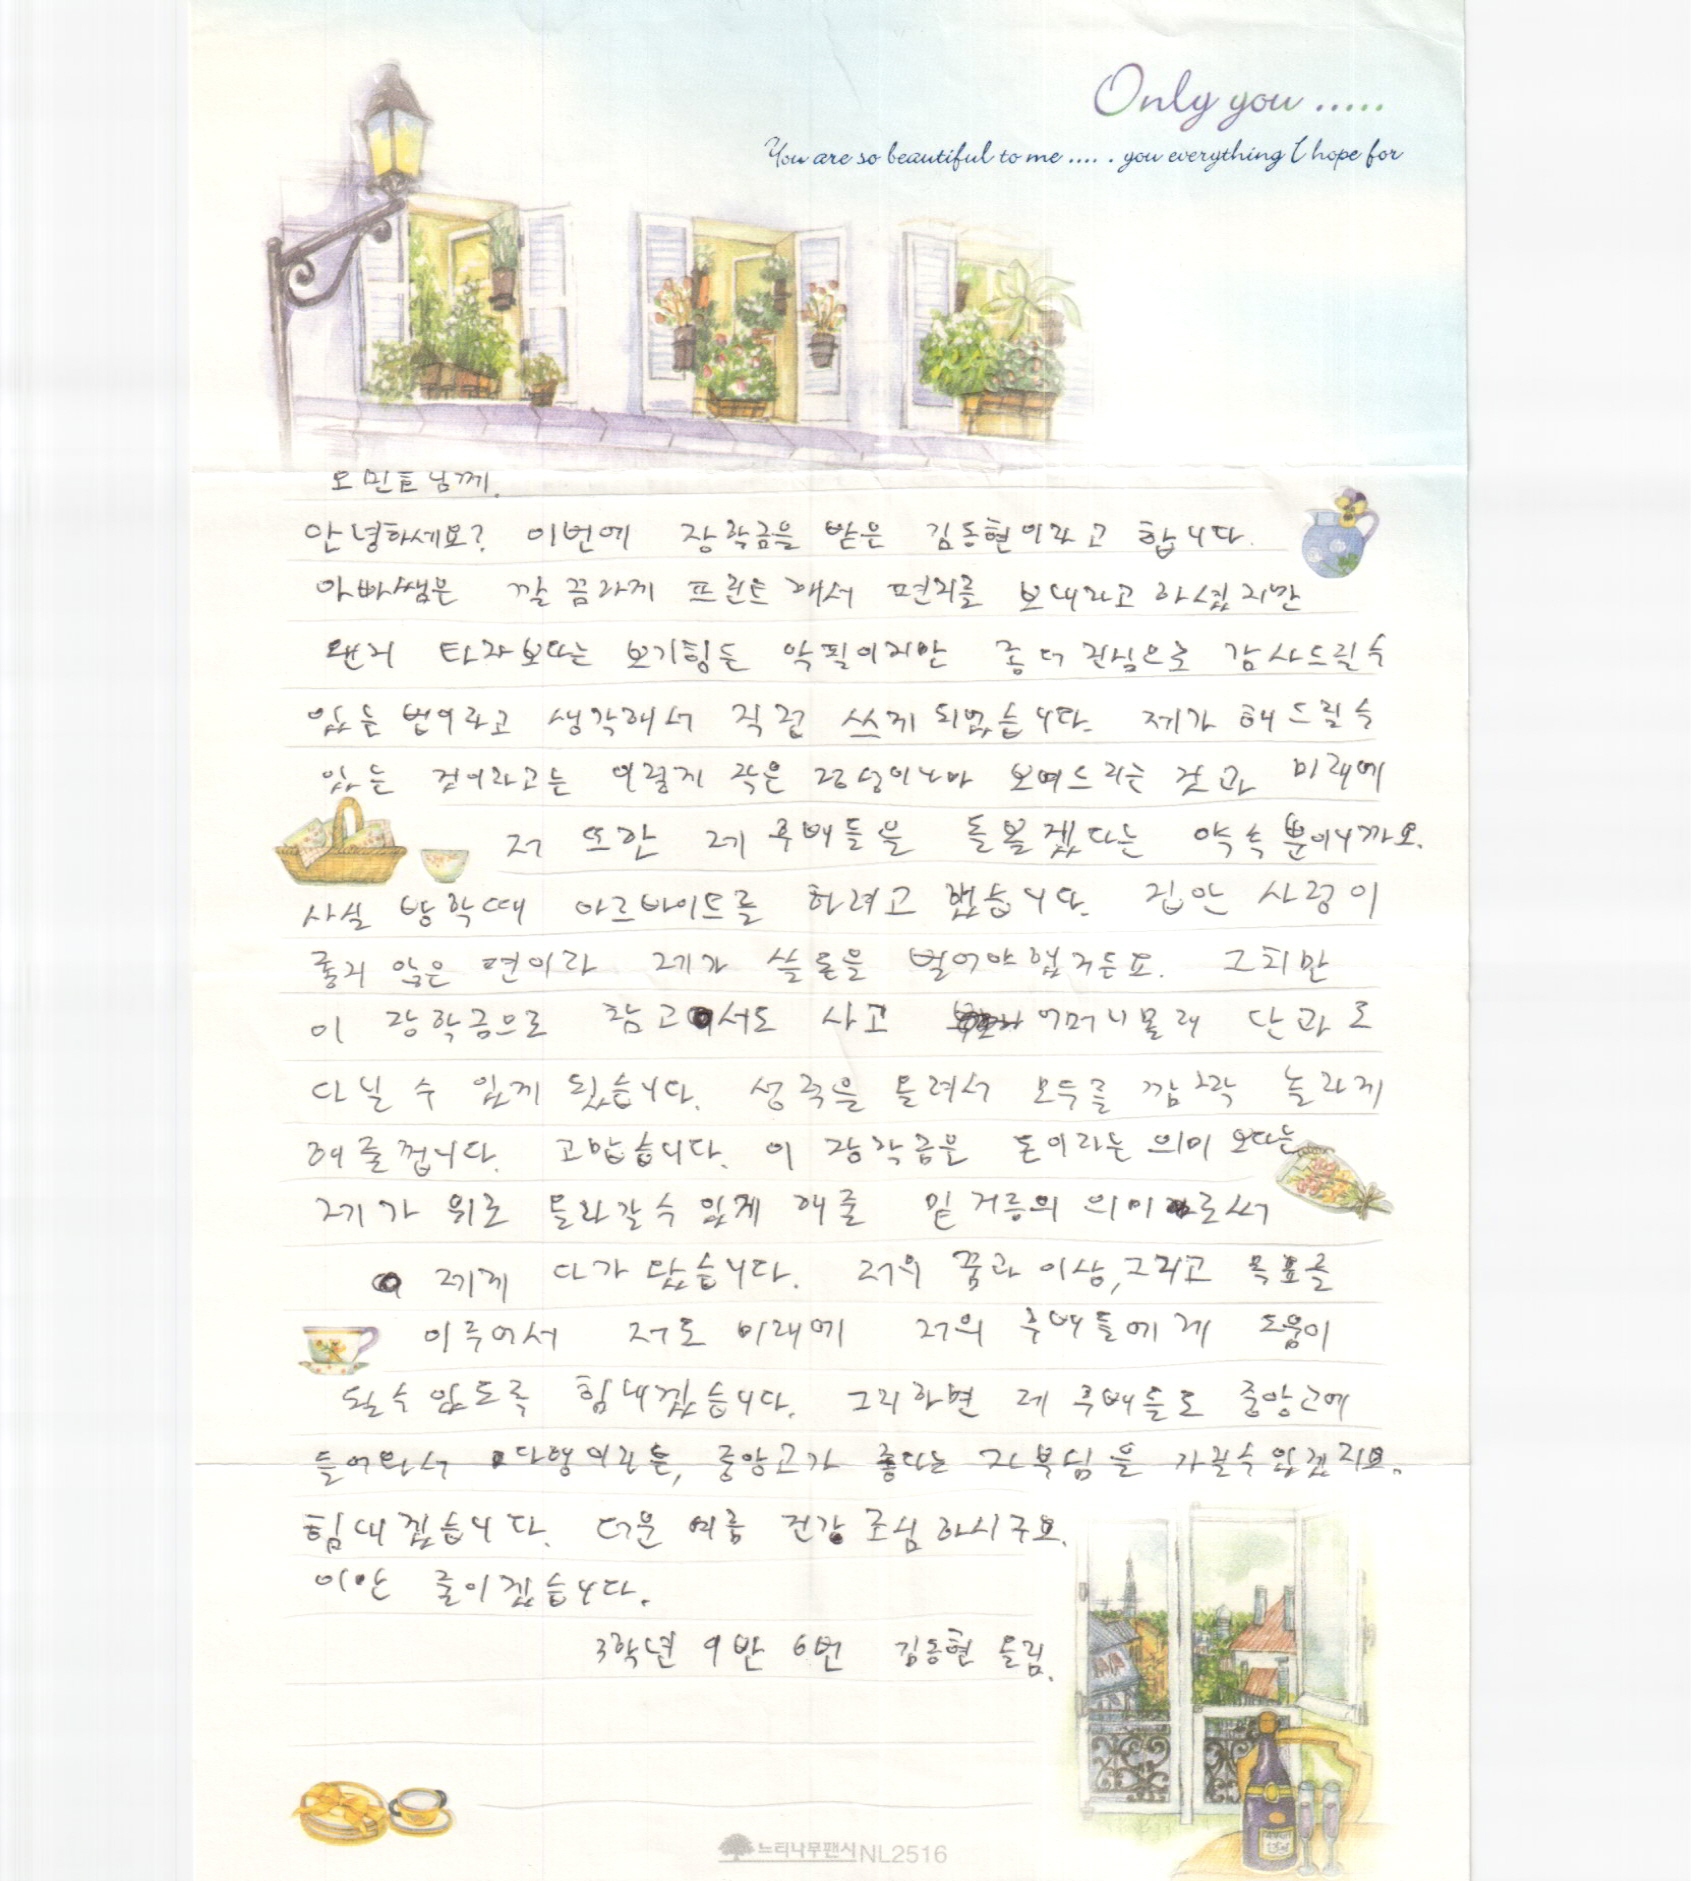 Only you .....
You are so beautiful to me .... . you everything I hope for
오민트님께.
안녕하세요? 이번에 장학금을 받은 김동현이라고 합니다.
아빠쌤은 깔끔하게 프린트해서 편지를 보내라고 하셨지만
왠지 타자보다는 보기힘든 악필이지만 좀 더 진심으로 감사드릴 수
있는 법이라고 생각해서 직접 쓰게 되었습니다. 제가 해드릴 수
있는 것이라고는 이렇게 작은 정성이나마 보여드리는 것과 미래에
저 또한 제 후배들을 돌볼겠다는 약속뿐이니까요.
사실 방학때 아르바이트를 하려고 했습니다. 집안 사정이
좋지 않은 편이라 제가 쓸 돈을 벌어야했거든요. 그치만
이 장학금으로 참고서도 사고 어머니몰래 단과도
다닐 수 있게 됬습니다. 성적을 올려서 모두를 깜짝 놀라게
해줄껍니다. 고맙습니다. 이 장학금은 돈이라는 의미 보다는
제가 위로 올라갈수 있게 해줄 밑거름의 의미로서
제게 다가 왔습니다. 저의 꿈과 이상, 그리고 목표를
이루어서 저도 미래에 저의 후배들에게 도움이
될수 있도록 힘내겠습니다. 그리하면 제 후배들도 중앙고에
들어와서 다행이란듯, 중앙고가 좋다는 자부심을 가질수있겠지요.
힘내겠습니다. 더운 여름 건강 조심하시구요.
이만 줄이겠습니다.
3학년 9반 6번 김동현 올림.
느티나무팬시 NL2516